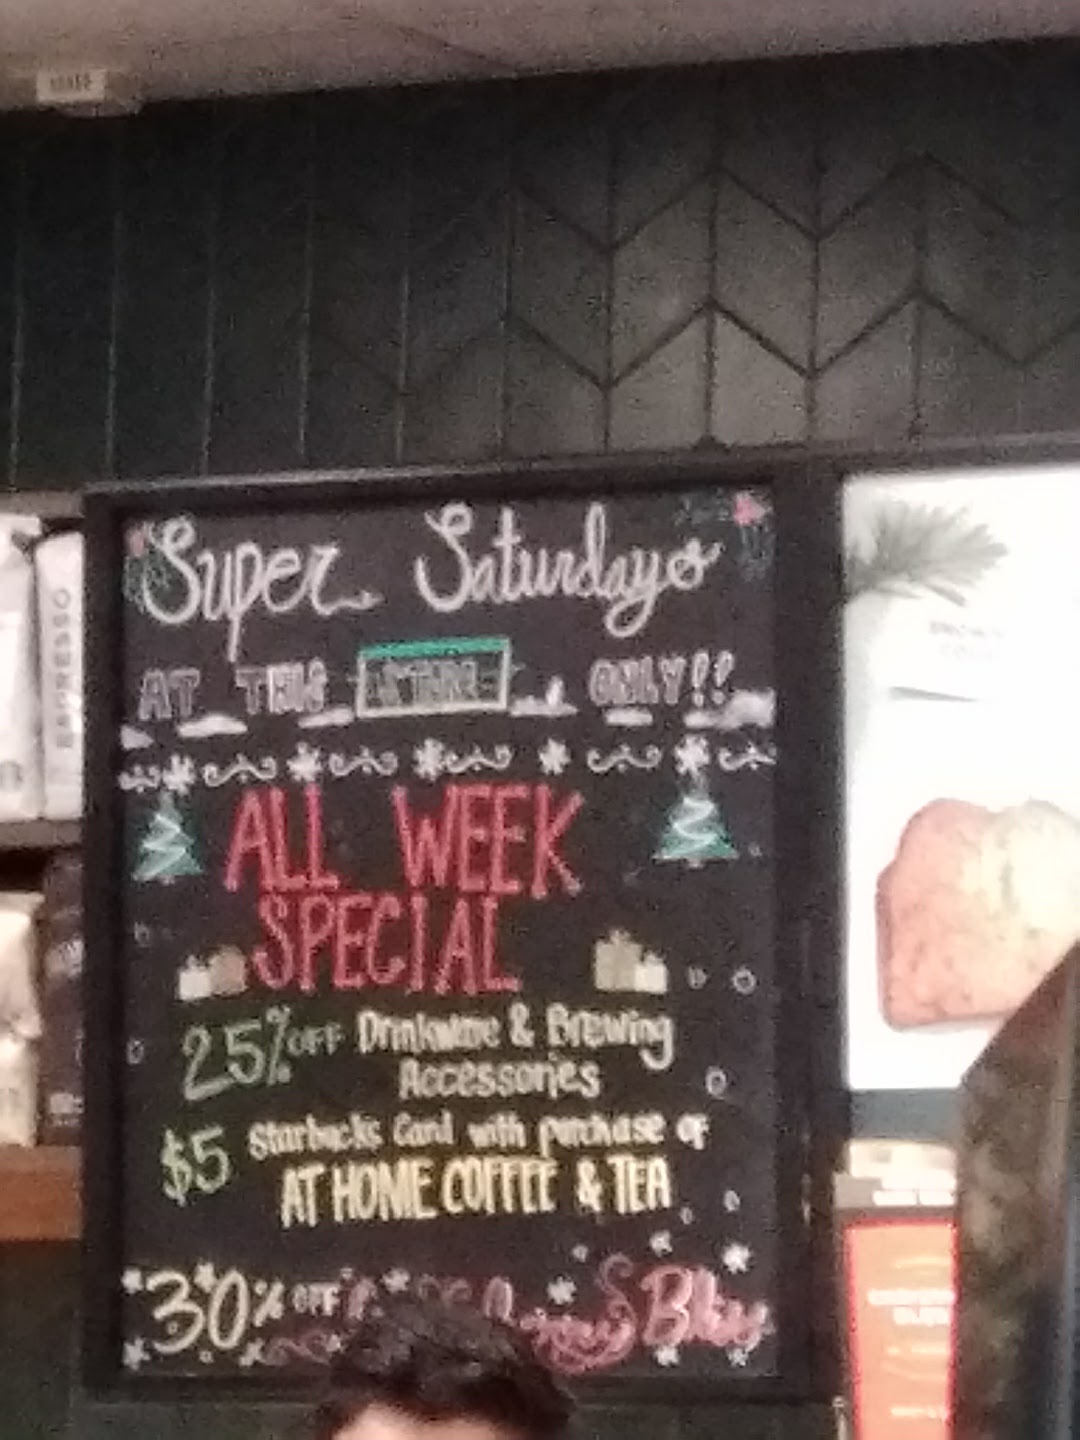 Super Saturday
AT THIS STORE ONLY!!
ALL WEEK
SPECIAL
25% OFF Drinkware & Brewing
Accessories
$5 Starbucks Card with purchase of
AT HOME COFFEE & TEA
30% OFF
ESPRESSO